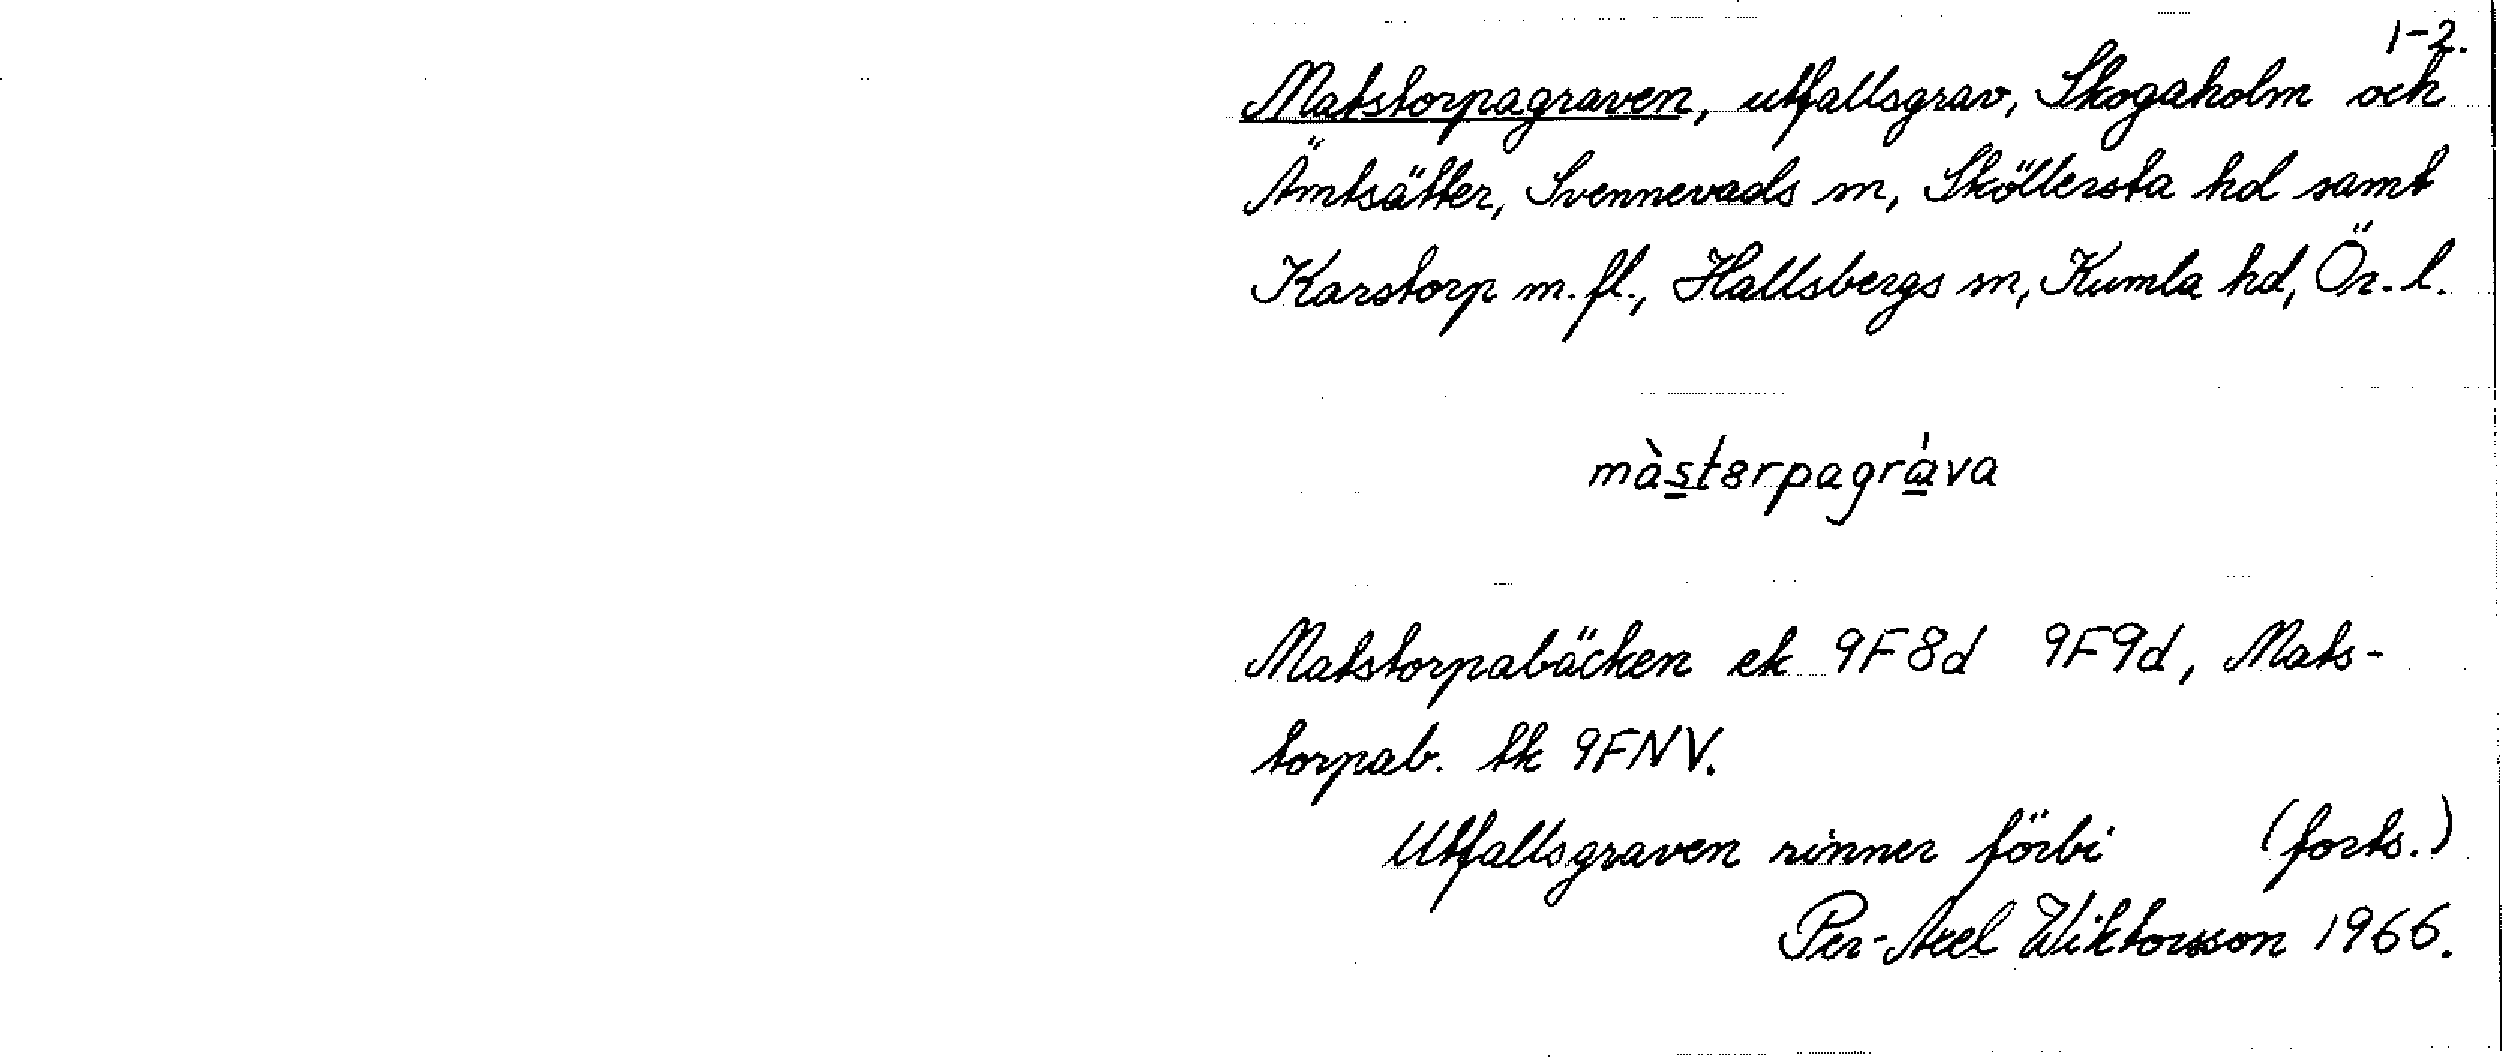 1-2.
Matstorpagraven, utfallsgrav, Skogaholm och
Ämtsätter, Svennevads sn, Sköllersta hd samt
Karstorp m. fl., Hallsbergs sn, Kumla hd, Ör. l.
màst8rpagráva
Matstorpabäcken ek 9F8d 9F9d, Mats-
torpab. tk 9FNV.
Utfallsgraven rinner förbi (forts.)
Per-Axel Wiktorsson 1966.